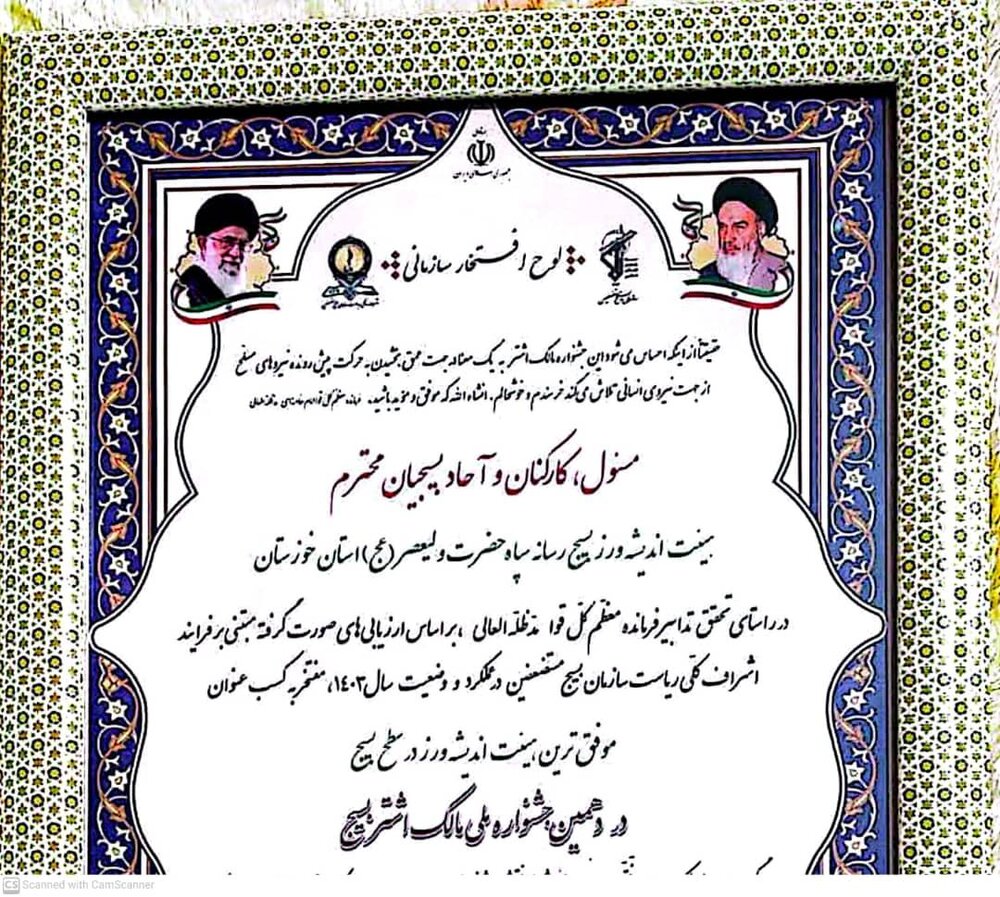 جمهوری اسلامی ایران
لوح افتخار سازمانی
حقیقتاً از اینکه احساس می‌شود این جشنواره مالک اشتر به یک معنا به جهت عمق بخشیدن به حرکت پیش رونده نیروهای مسلح
از جهت نیروی انسانی تلاش می‌کند خرسندم و خوشحالم. انشاءالله که موفق و مؤید باشید.
مسئول، کارکنان و آحاد بسیجیان محترم
هیئت اندیشه ورز بسیج رسانه سپاه حضرت ولیعصر (عج) استان خوزستان
در راستای تحقق تدابیر فرمانده معظم کل قوا مدظله العالی، بر اساس ارزیابی‌های صورت گرفته مبتنی بر فرایند
اشراف کلی ریاست سازمان بسیج مستضعفین در عملکرد و وضعیت سال ۱۴۰۳، مفتخر به کسب عنوان
موفق ترین هیئت اندیشه ورز در سطح بسیج
در دهمین جشنواره ملی مالک اشتر بسیج
CS Scanned with CamScanner